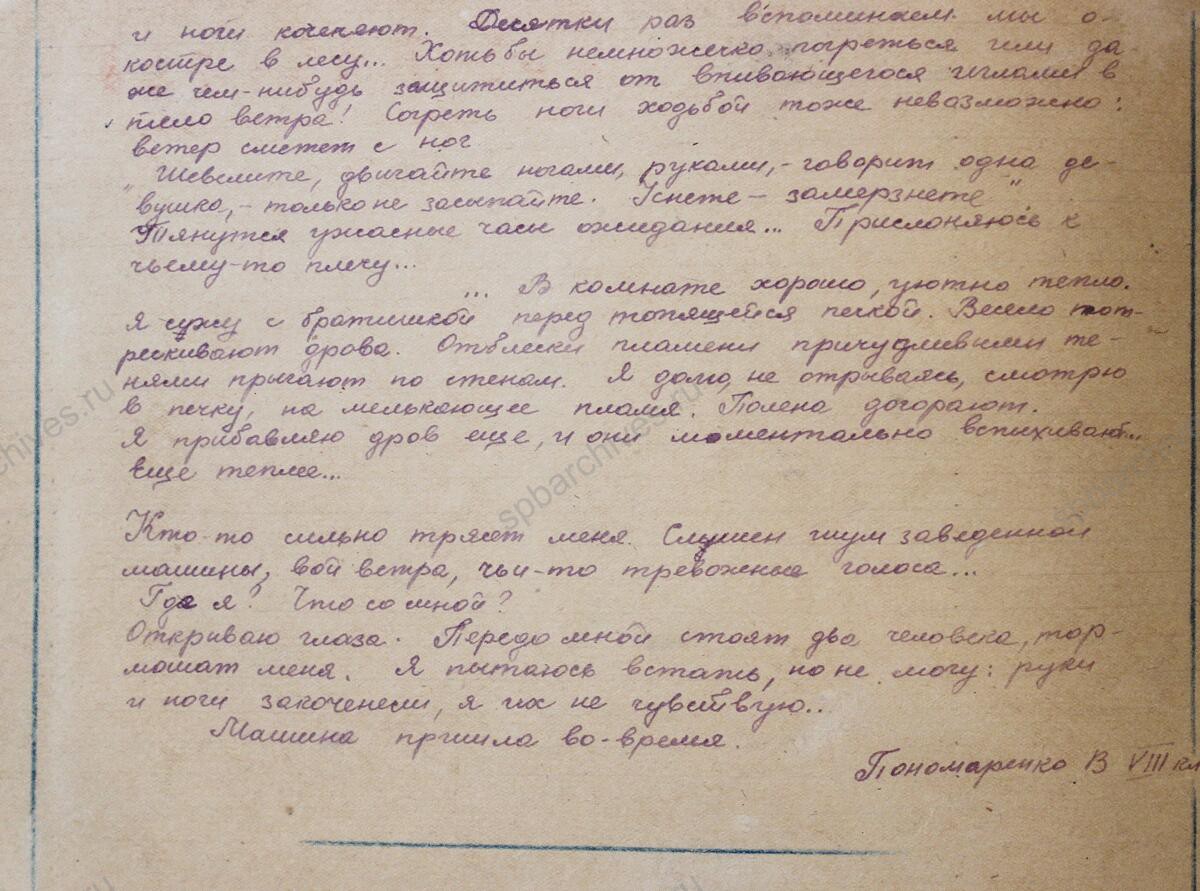 и ноги коченеют. Десятки раз вспоминаем мы о
костре в лесу... Хотьбы немножечко погреться или да-
же чем-нибудь защититься от впивающегося иглами в
тело ветра! Согреть ноги ходьбой тоже невозможно:
ветер сметет с ног
"Шевелите, двигайте ногами, руками, - говорит одна де-
вушка, - только не засыпайте. Уснете - замерзнете"
Тянутся ужасные часы ожидания... Прислоняюсь к
чьему-то плечу...
... В комнате хорошо, уютно тепло.
Я сижу с братишкой перед топящейся печкой. Весело пот-
рескивают дрова. Отблески пламени причудливыми те-
нями прыгают по стенам. Я долго, не отрываясь, смотрю
в печку, на мелькающее пламя. Полена догорают.
Я прибавляю дров еще, и они моментально вспыхивают..
Еще теплее...
Кто-то сильно трясет меня. Слышен шум заведенной
машины, вой ветра, чьи-то тревожные голоса...
Где я? Что со мной?
Открываю глаза. Передо мной стоят два человека, тор-
мошат меня. Я пытаюсь встать, но не могу: руки
и ноги закоченели, я их не чувствую..
Машина пришла во-время.
Пономаренко В VIII кл
spbarchives.ru